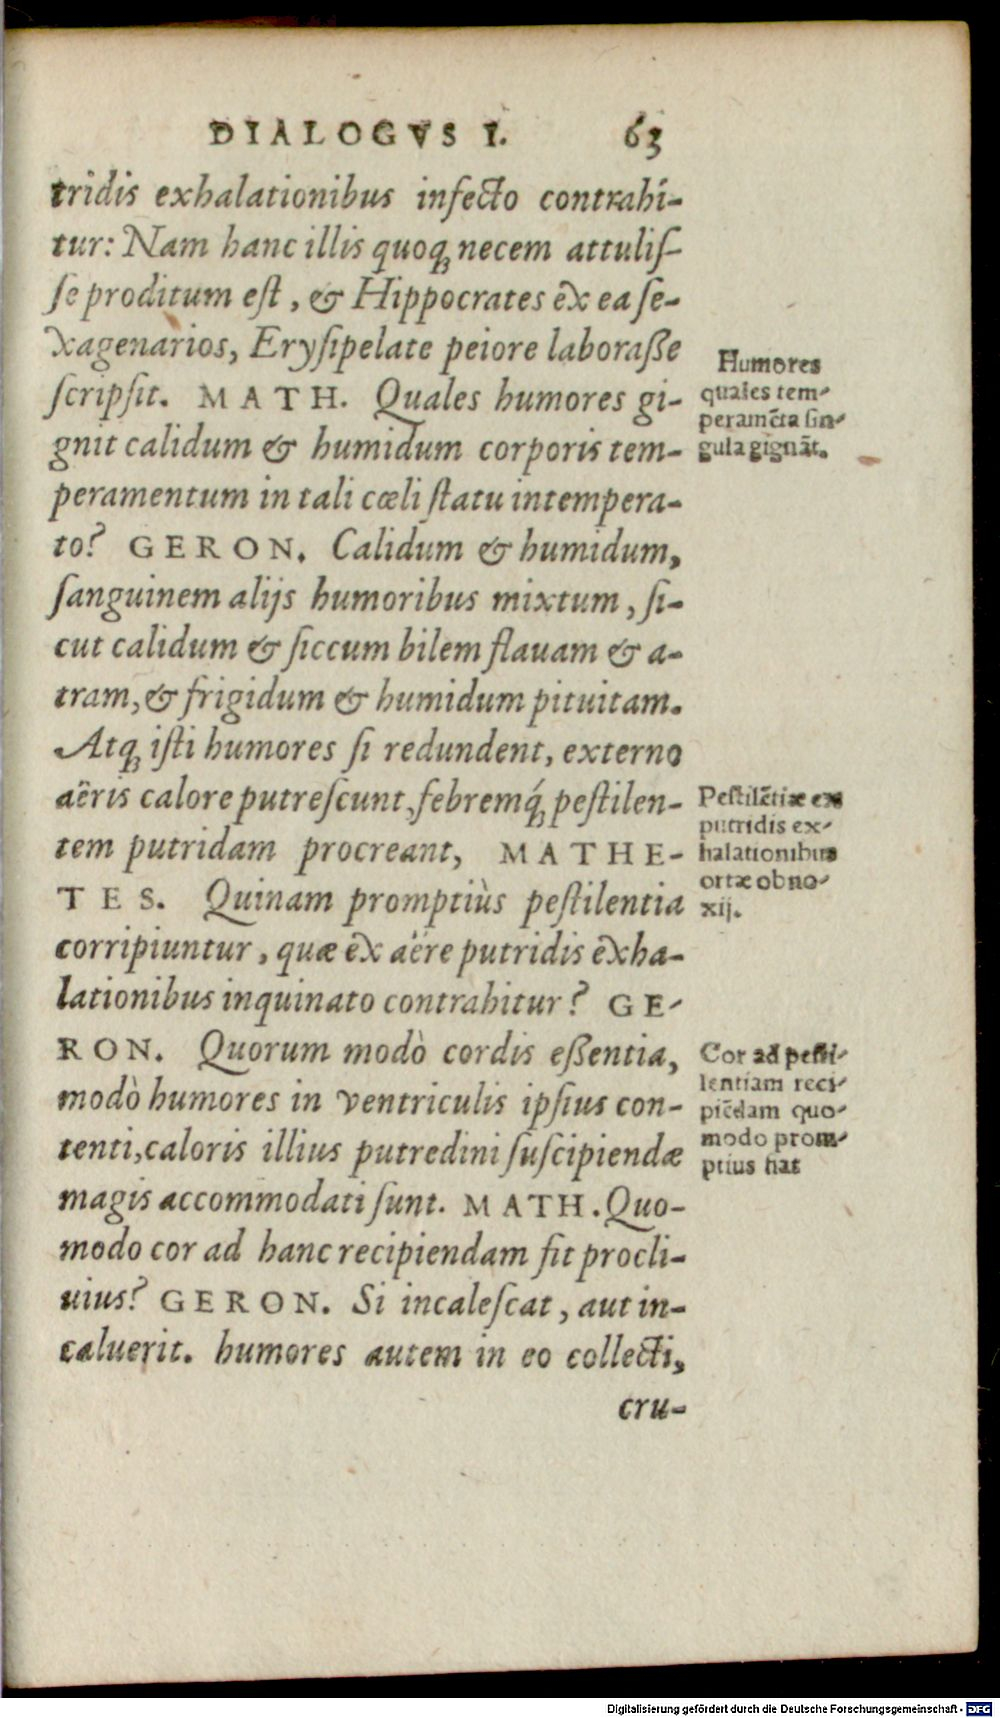 DIALOGVS I. 63
tridis exhalationibus infecto contrahi-
tur: Nam hanc illis quoq; necem attuliſ-
ſe proditum eſt, & Hippocrates ex ea ſe-
xagenarios, Eryſipelate peiore laboraſſe
ſcripſit. MATH. Quales humores gi-
gnit calidum & humidum corporis tem-
peramentum in tali cœli ſtatu intempera-
to? GERON. Calidum & humidum,
ſanguinem alijs humoribus mixtum, ſi-
cut calidum & ſiccum bilem flauam & a-
tram, & frigidum & humidum pituitam.
Atq; iſti humores ſi redundent, externo
aëris calore putreſcunt, febremq́; peſtilen-
tem putridam procreant, MATHE-
TES. Quinam promptiùs peſtilentia
corripiuntur, quæ ex aëre putridis exha-
lationibus inquinato contrahitur? GE-
RON. Quorum modò cordis eſſentia,
modò humores in ventriculis ipſius con-
tenti, caloris illius putredini ſuſcipiendæ
magis accommodati ſunt. MATH. Quo-
modo cor ad hanc recipiendam fit procli-
uius? GERON. Si incaleſcat, aut in-
caluerit. humores autem in eo collecti,
cru-
Humores
quales tem-
peramēta ſin-
gula gignāt.
Peſtilētiæ ex
putridis ex-
halationibus
ortæ obno-
xij.
Cor ad peſti-
lentiam reci-
piēdam quo-
modo prom-
ptius fiat
Digitalisierung gefördert durch die Deutsche Forschungsgemeinschaft - DFG